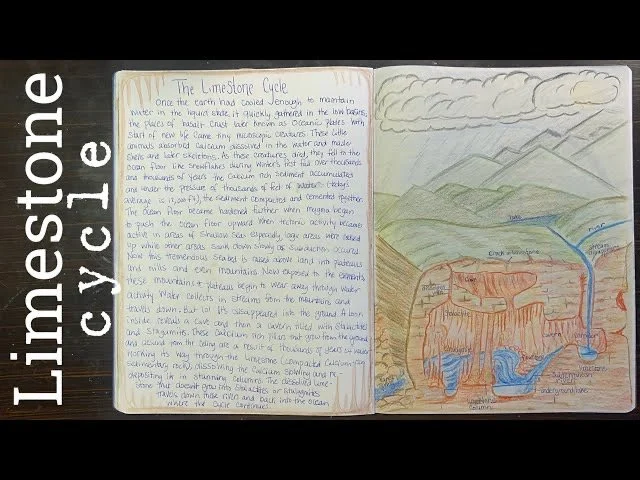 Limestone
cycle
The Limestone Cycle
Once the earth had cooled enough to maintain
water in the liquid state, it quickly gathered in the low basins,
the places of basalt crust later known as Oceanic plates. With
start of new life came tiny microscopic creatures. These little
animals absorbed calcium dissolved in the water and made
shells and later skeletons. As these creatures died, they fell to the
ocean floor like snowflakes during winter's first fall. Over thousands
and thousands of years the calcium rich sediment accumulated
and under the pressure of thousands of feet of water (today's
average is 12,000 ft), the sediment compacted and cemented together.
The ocean floor became hardened further when magma began
to push the ocean floor upward when tectonic activity became
active in areas of shallow seas especially, large areas were
up while other areas sank down slowly as subduction occured.
Now this tremendous seabed is raised above land into plateaus
and hills and even mountains. Now exposed to the elements
these mountains & plateaus begin to wear away through water
activity. Water collects in streams from the mountains and
travels down. But lo! It's disappeared into the ground. A look
inside reveals a cave and then a cavern filled with Stalactites
and Stalagmites. These calcium rich piles that grow from the ground
and down from the ceiling are a result of thousands of years of water
working its way through the limestone (compacted calcium-rich
sedimentary rock), dissolving the calcium slowly and re-
depositing it in stunning columns. The dissolved lime-
stone that doesn't grow into stalactites or stalagmites
travels down these rivers and back into the ocean
where the cycle continues.
lake
river
stream
disappears
Crack in limestone
stalactite
column
underground lakes